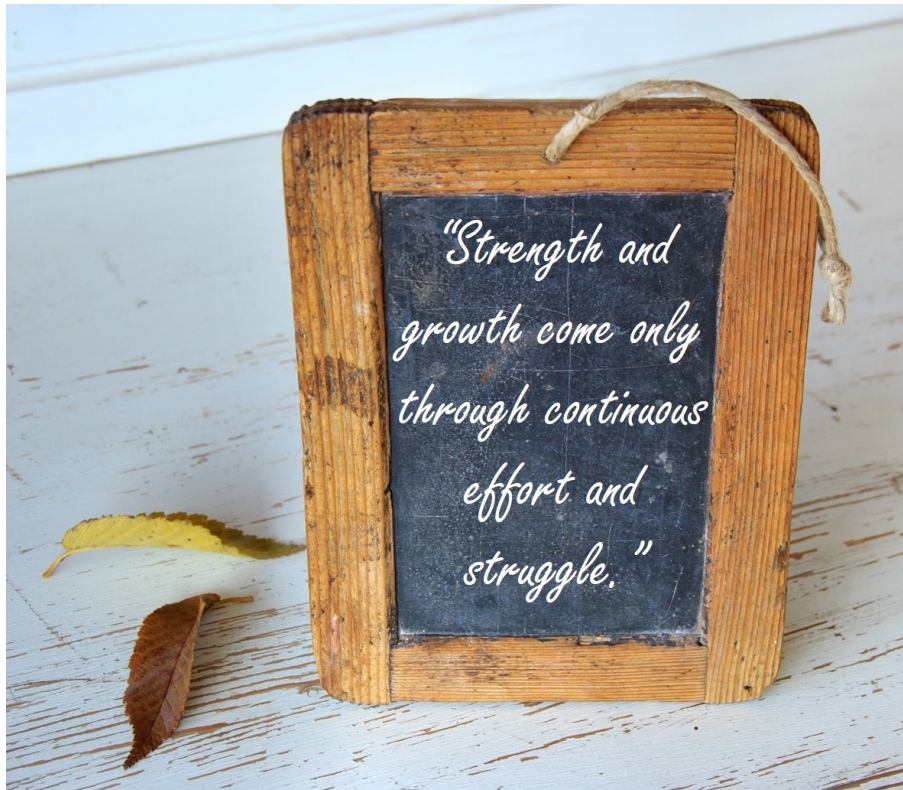 “Strength and
growth come only
through continuous
effort and
struggle.”